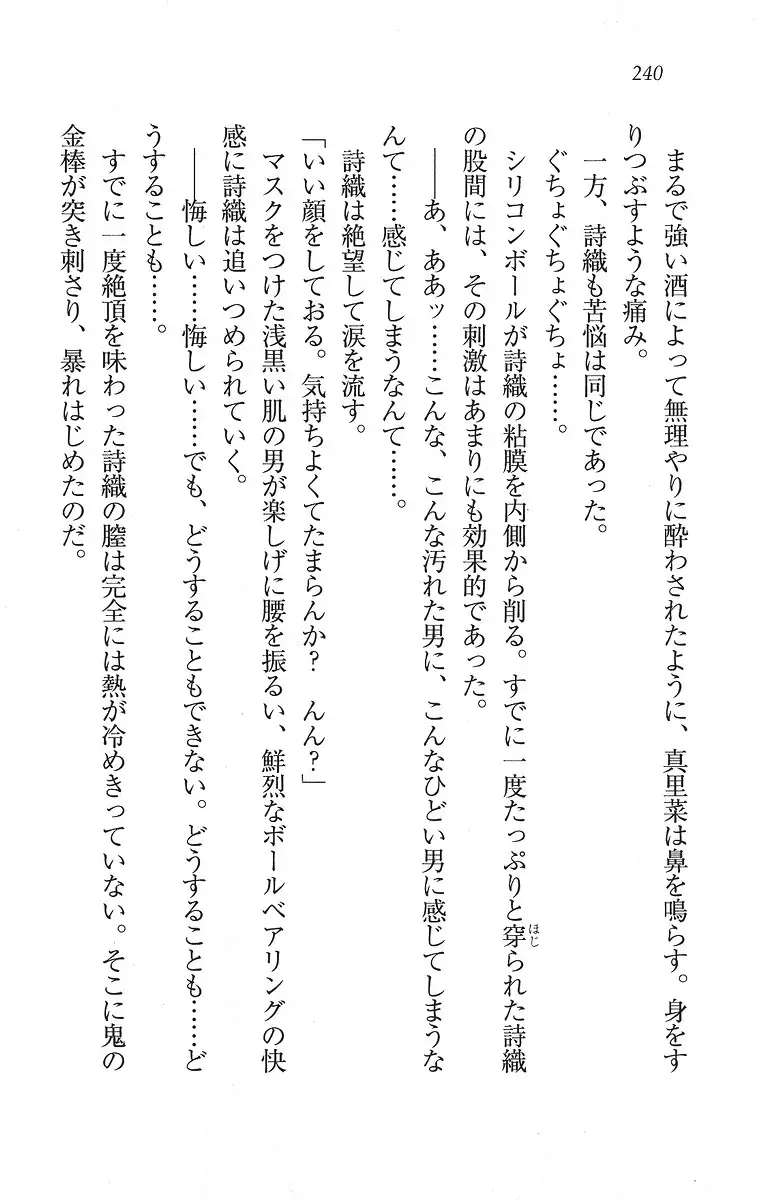 240
まるで強い酒によって無理やりに酔わされたように、真里菜は鼻を鳴らす。身をす
りつぶすような痛み。
一方、詩織も苦悩は同じであった。
ぐちょぐちょぐちょ……。
シリコンボールが詩織の粘膜を内側から削る。すでに一度たっぷりと穿られた詩織
ほじ
の股間には、その刺激はあまりにも効果的であった。
――あ、ああッ……こんな、こんな汚れた男に、こんなひどい男に感じてしまうな
んて……感じてしまうなんて……。
詩織は絶望して涙を流す。
「いい顔をしておる。気持ちよくてたまらんか？　んん？」
マスクをつけた浅黒い肌の男が楽しげに腰を振るい、鮮烈なボールベアリングの快
感に詩織は追いつめられていく。
――悔しい……悔しい……でも、どうすることもできない。どうすることも……ど
うすることも……。
すでに一度絶頂を味わった詩織の膣は完全には熱が冷めきっていない。そこに鬼の
金棒が突き刺さり、暴れはじめたのだ。